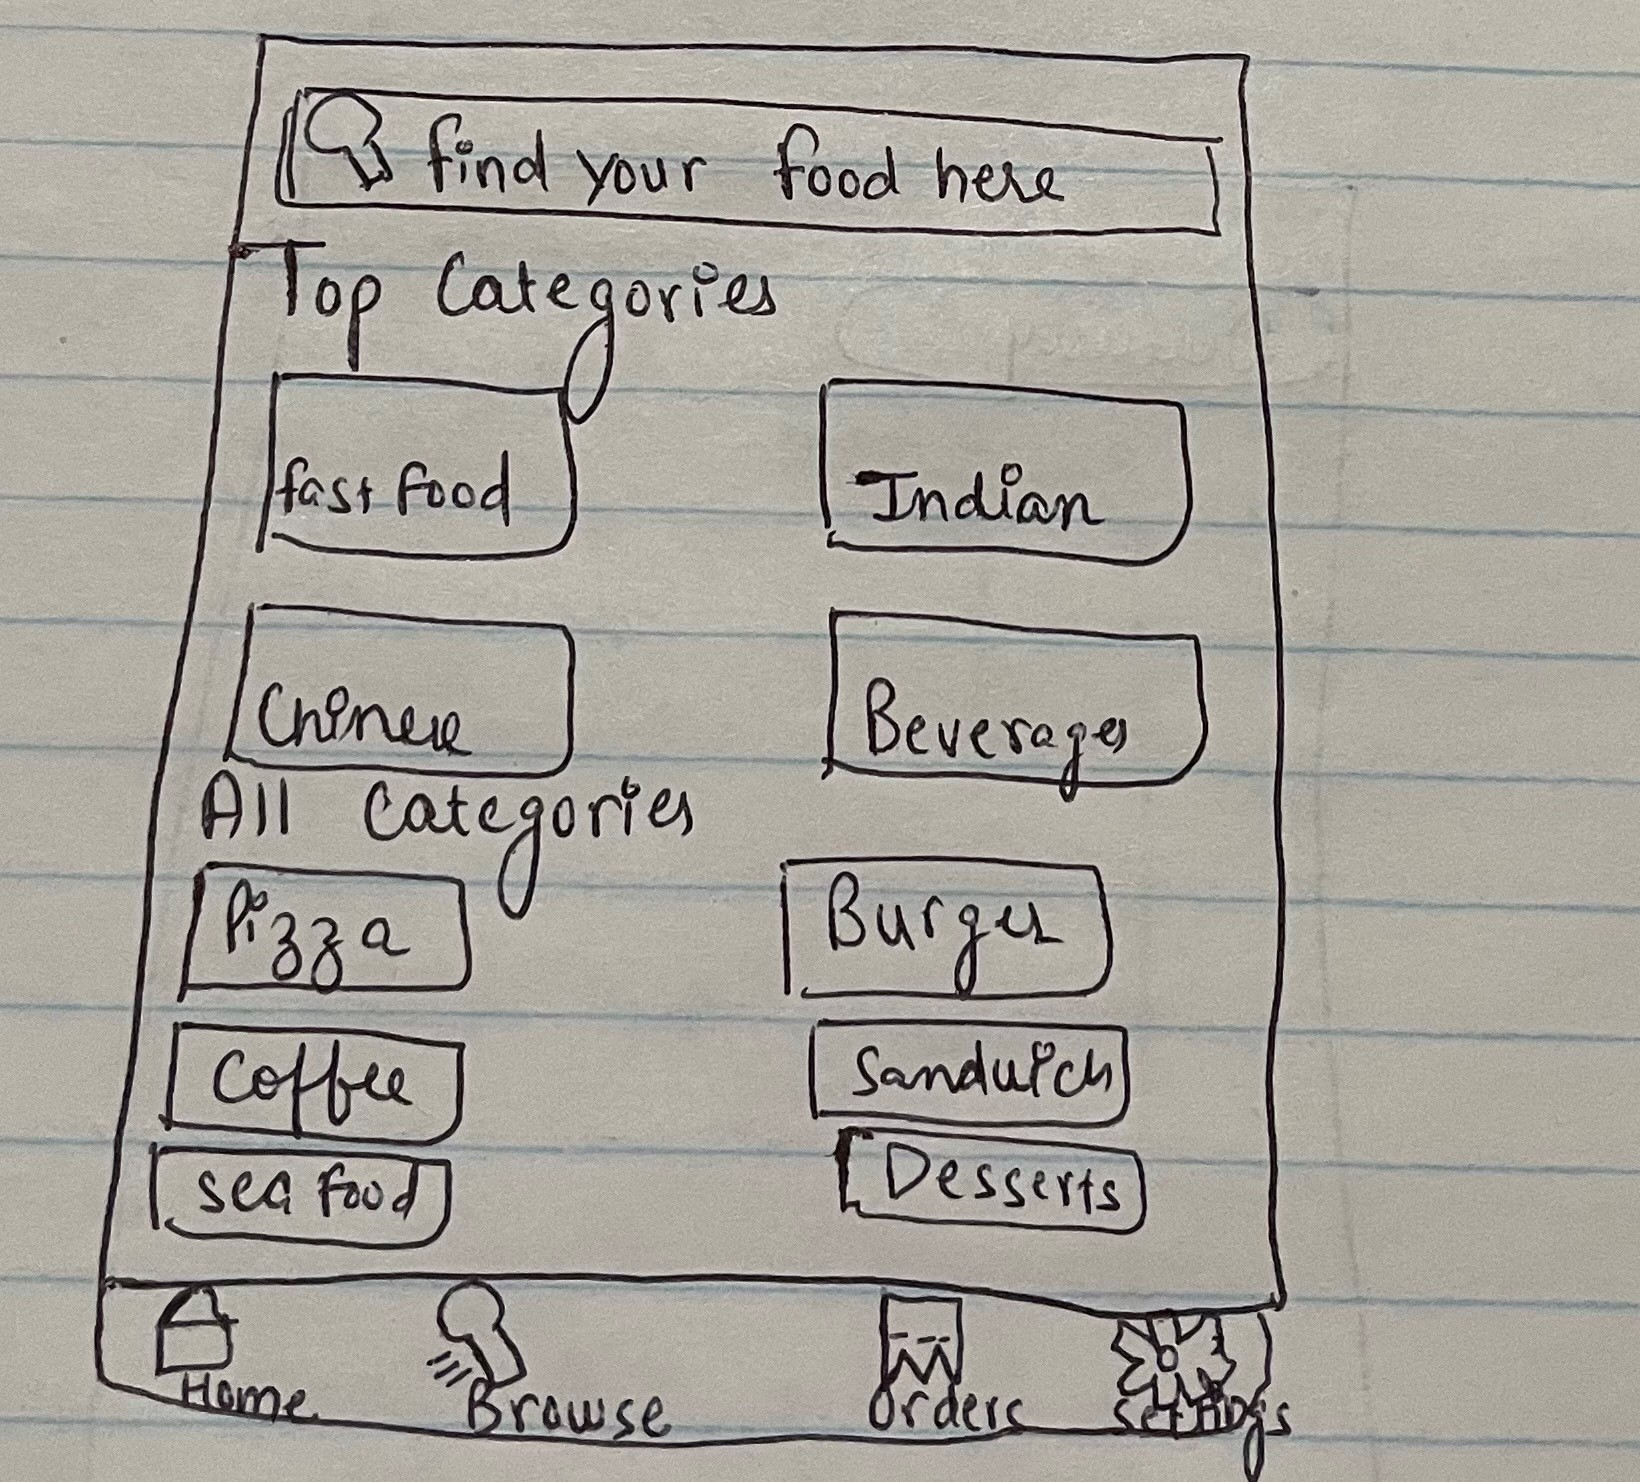 find your food here
Top Categories
fast food
Indian
Chinese
Beverages
All Categories
Pizza
Burger
Coffee
Sandwich
sea food
Desserts
Home
Browse
Orders
Settings